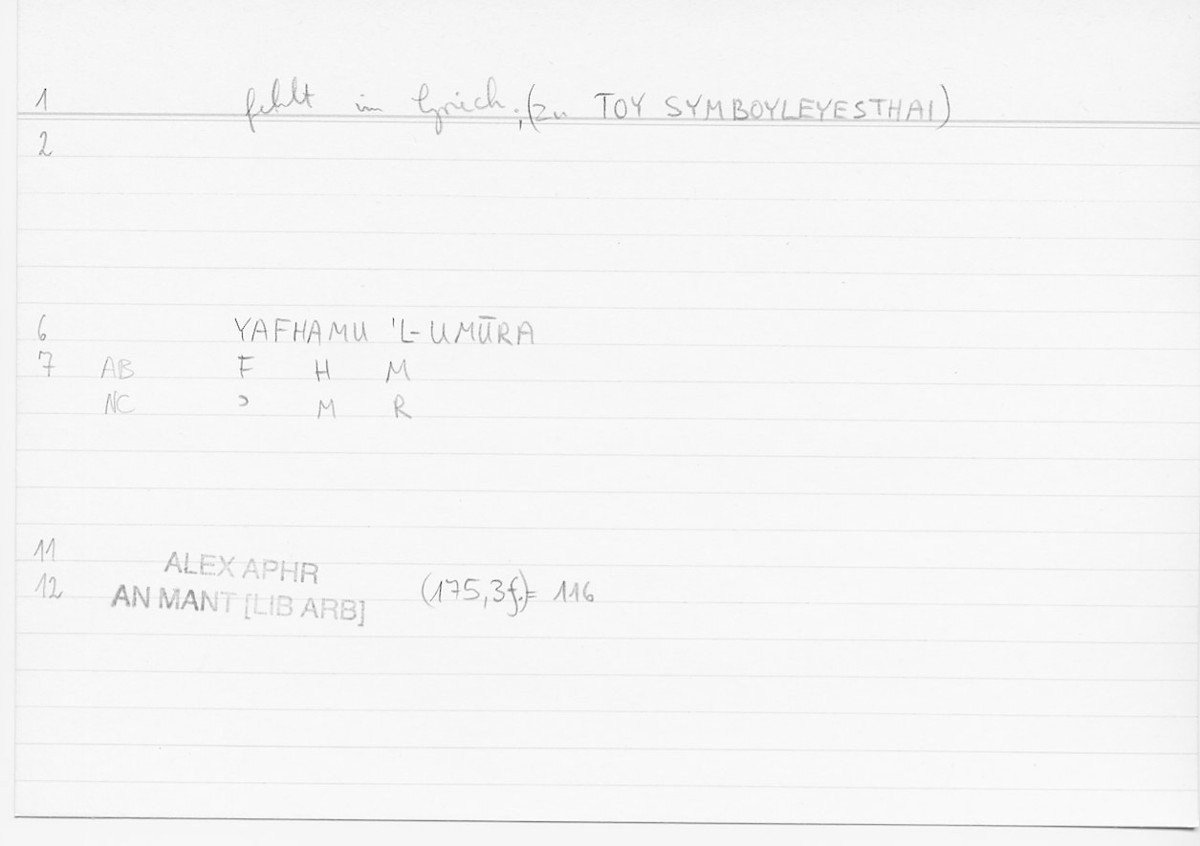 1 fehlt im Griech.; (zu TOY SYMBOYLEYESTHAI)
2
6 YAFHAMU 'L-UMŪRA
7 AB F H M
NC ʾ M R
11 ALEX APHR
12 AN MANT [LIB ARB] (175,3f.)= 116